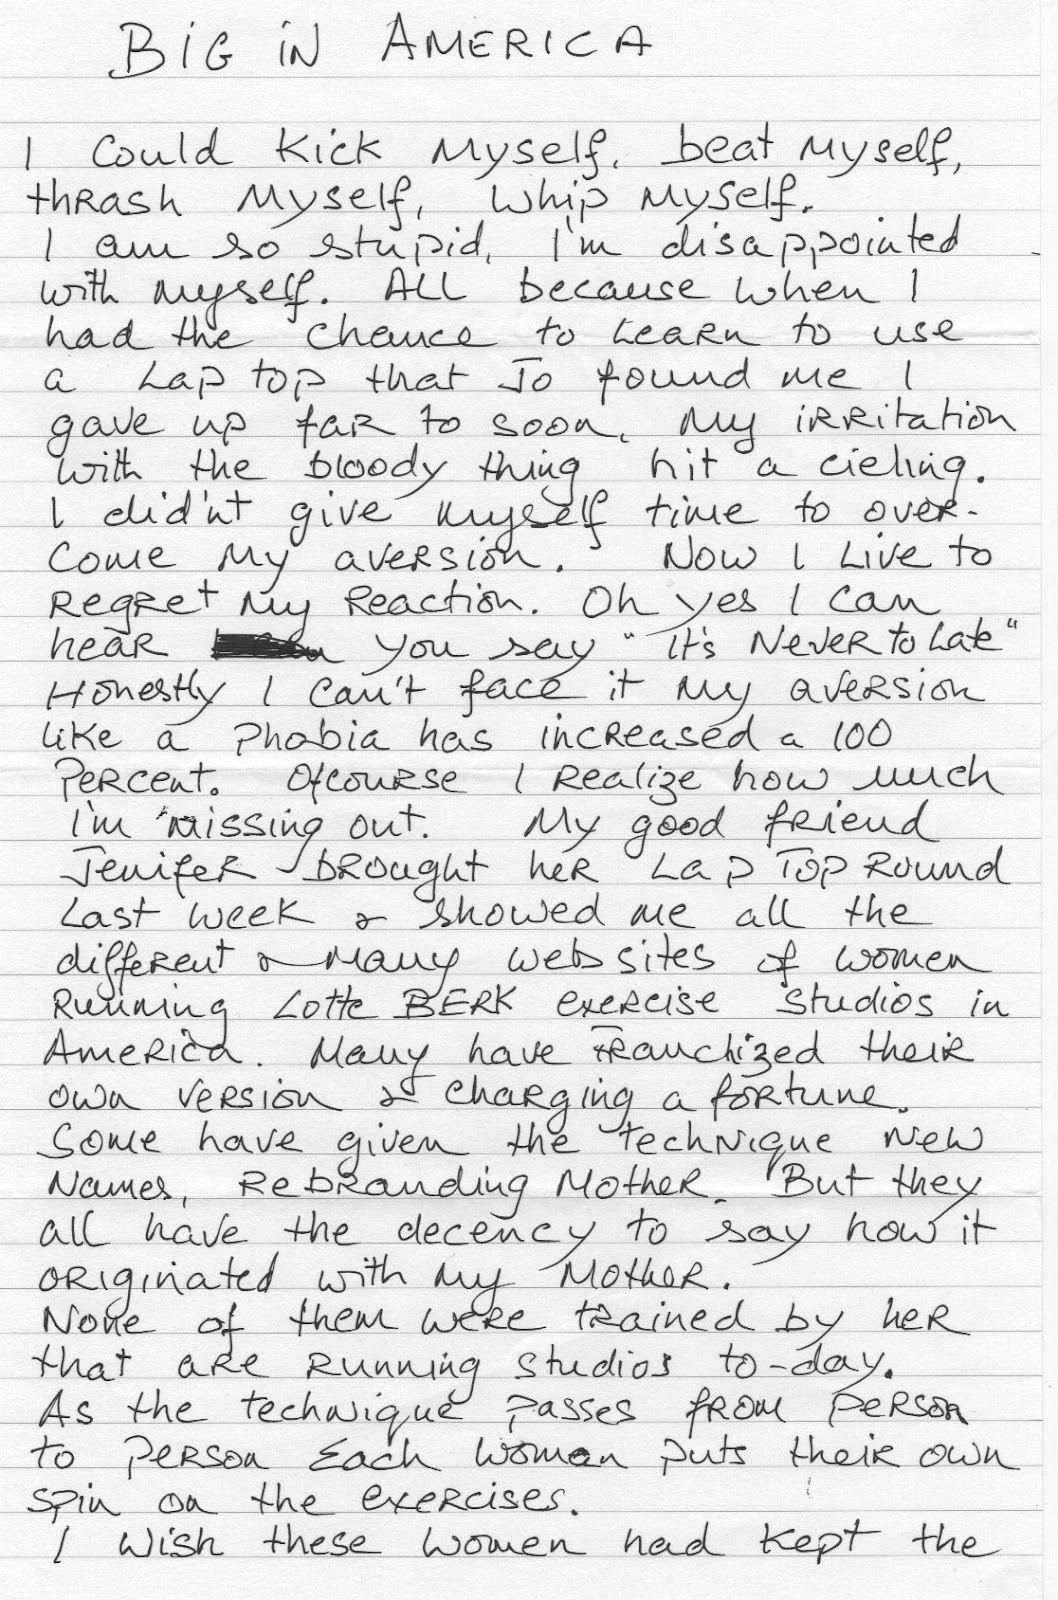 BIG IN AMERICA
I could kick myself, beat myself,
thrash myself, whip myself.
I am so stupid, I'm disappointed
with myself. All because when I
had the chance to learn to use
a Lap top that Jo found me I
gave up far to soon, my irritation
with the bloody thing hit a cieling.
I did'nt give myself time to over-
come my aversion. Now I live to
regret my reaction. Oh yes I can
hear you say "It's never to late"
Honestly I can't face it my aversion
like a phobia has increased a 100
percent. Ofcourse I realize how much
I'm missing out. My good friend
Jenifer brought her Lap Top round
last week & showed me all the
different & many websites of women
running Lotte BERK exercise studios in
America. Many have franchized their
own version & charging a fortune.
Some have given the technique new
names, rebranding Mother. But they
all have the decency to say how it
originated with my Mother.
None of them were trained by her
that are running studios to-day.
As the technique passes from person
to person each woman puts their own
spin on the exercises.
I wish these women had kept the